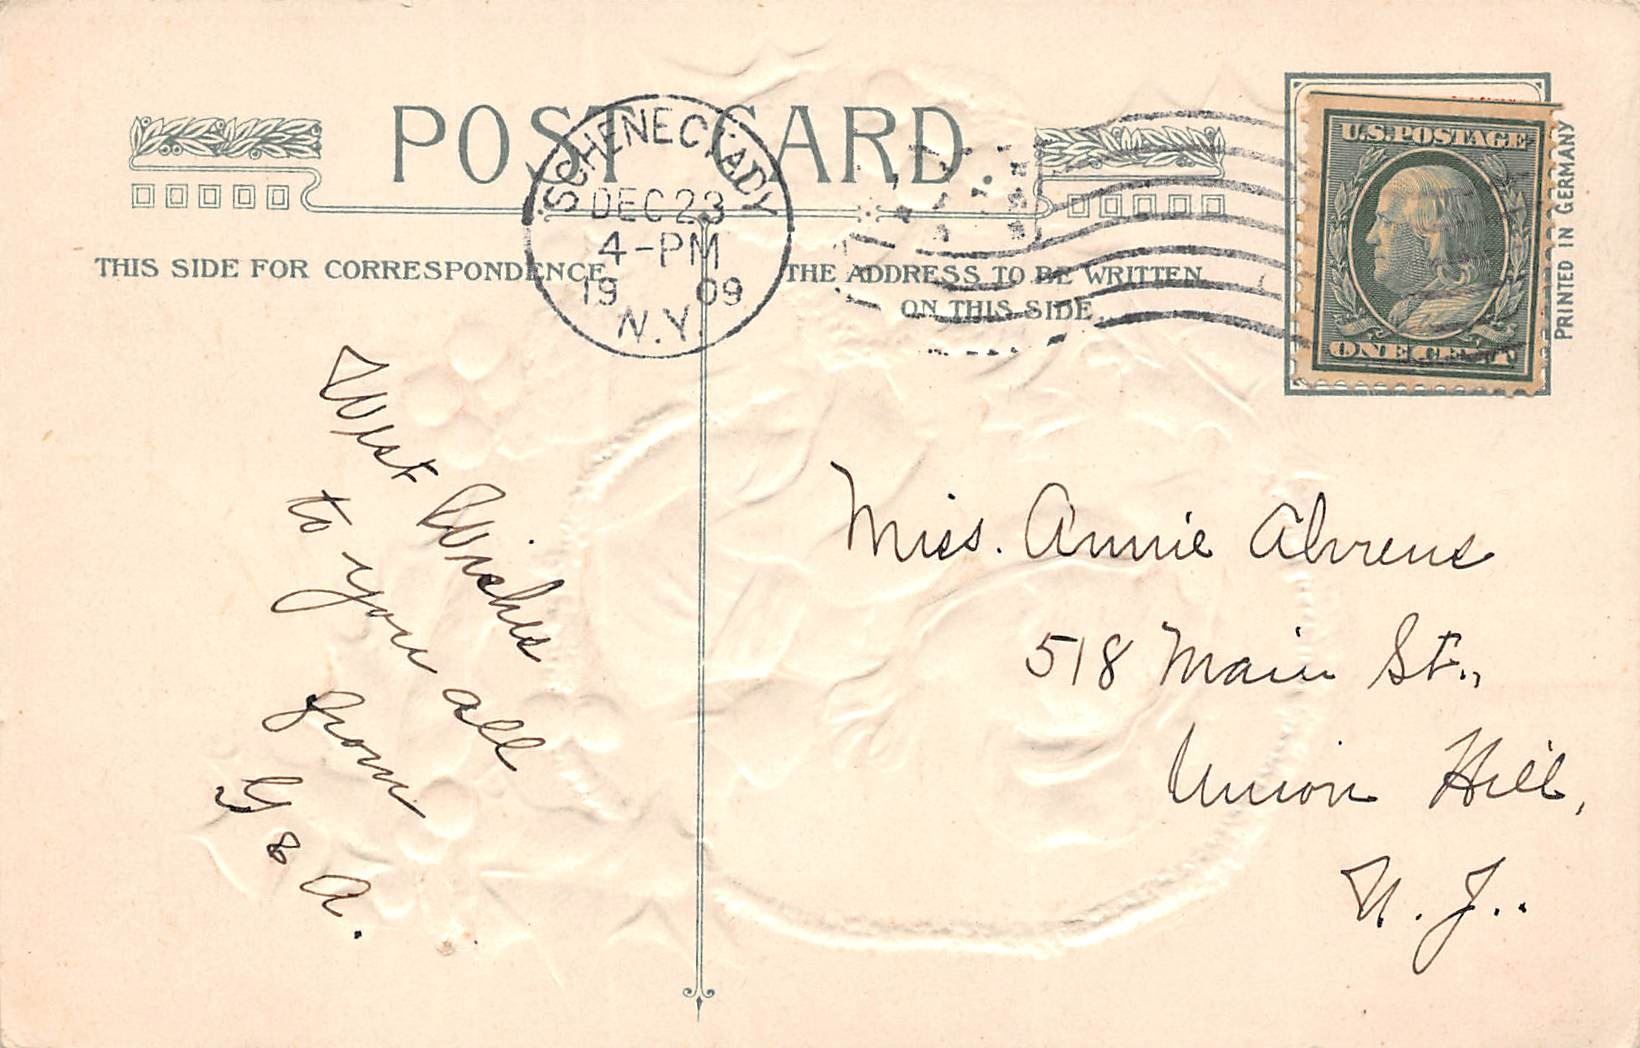 POST CARD
THIS SIDE FOR CORRESPONDENCE.
THE ADDRESS TO BE WRITTEN
ON THIS SIDE.
SCHENECTADY
DEC 23
4-PM
1909
N.Y.
U.S. POSTAGE
ONE CENT
PRINTED IN GERMANY
Wishes
to you all
from
G & A.
Miss. Annie Ahrens
518 Main St.,
Union Hill,
N. J..